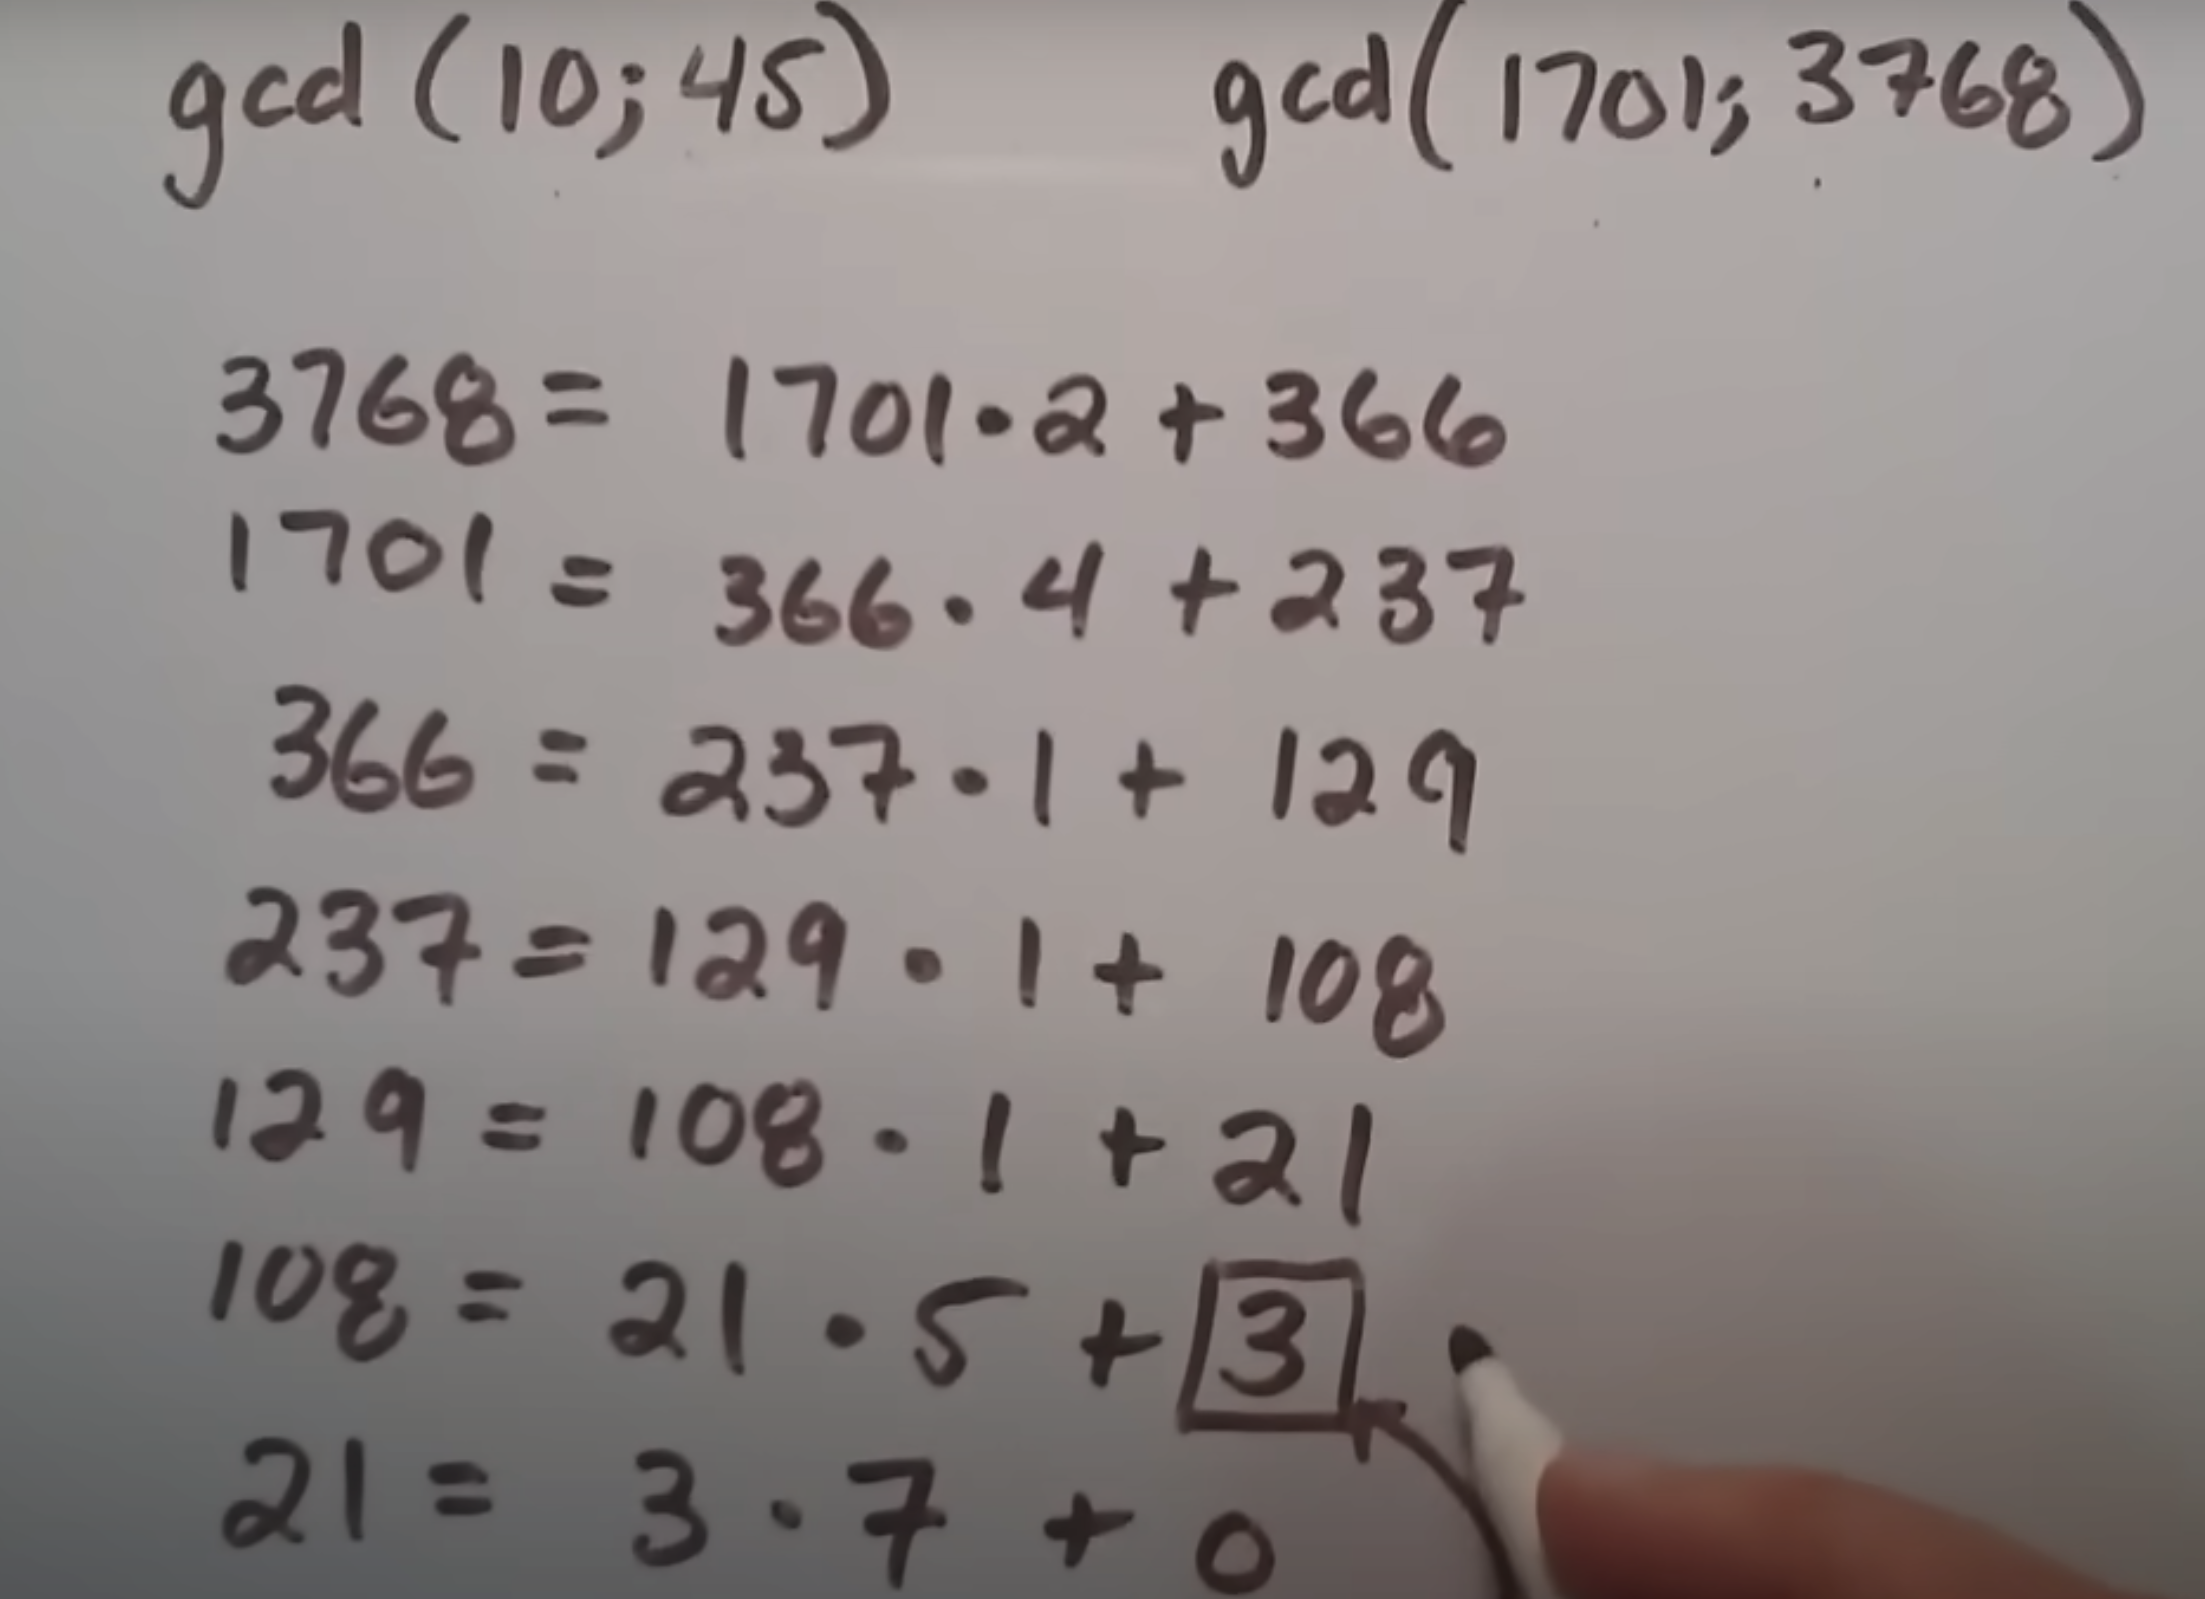 gcd (10; 45) gcd(1701; 3768)
3768 = 1701 · 2 + 366
1701 = 366 · 4 + 237
366 = 237 · 1 + 129
237 = 129 · 1 + 108
129 = 108 · 1 + 21
108 = 21 · 5 + 3
21 = 3 · 7 + 0